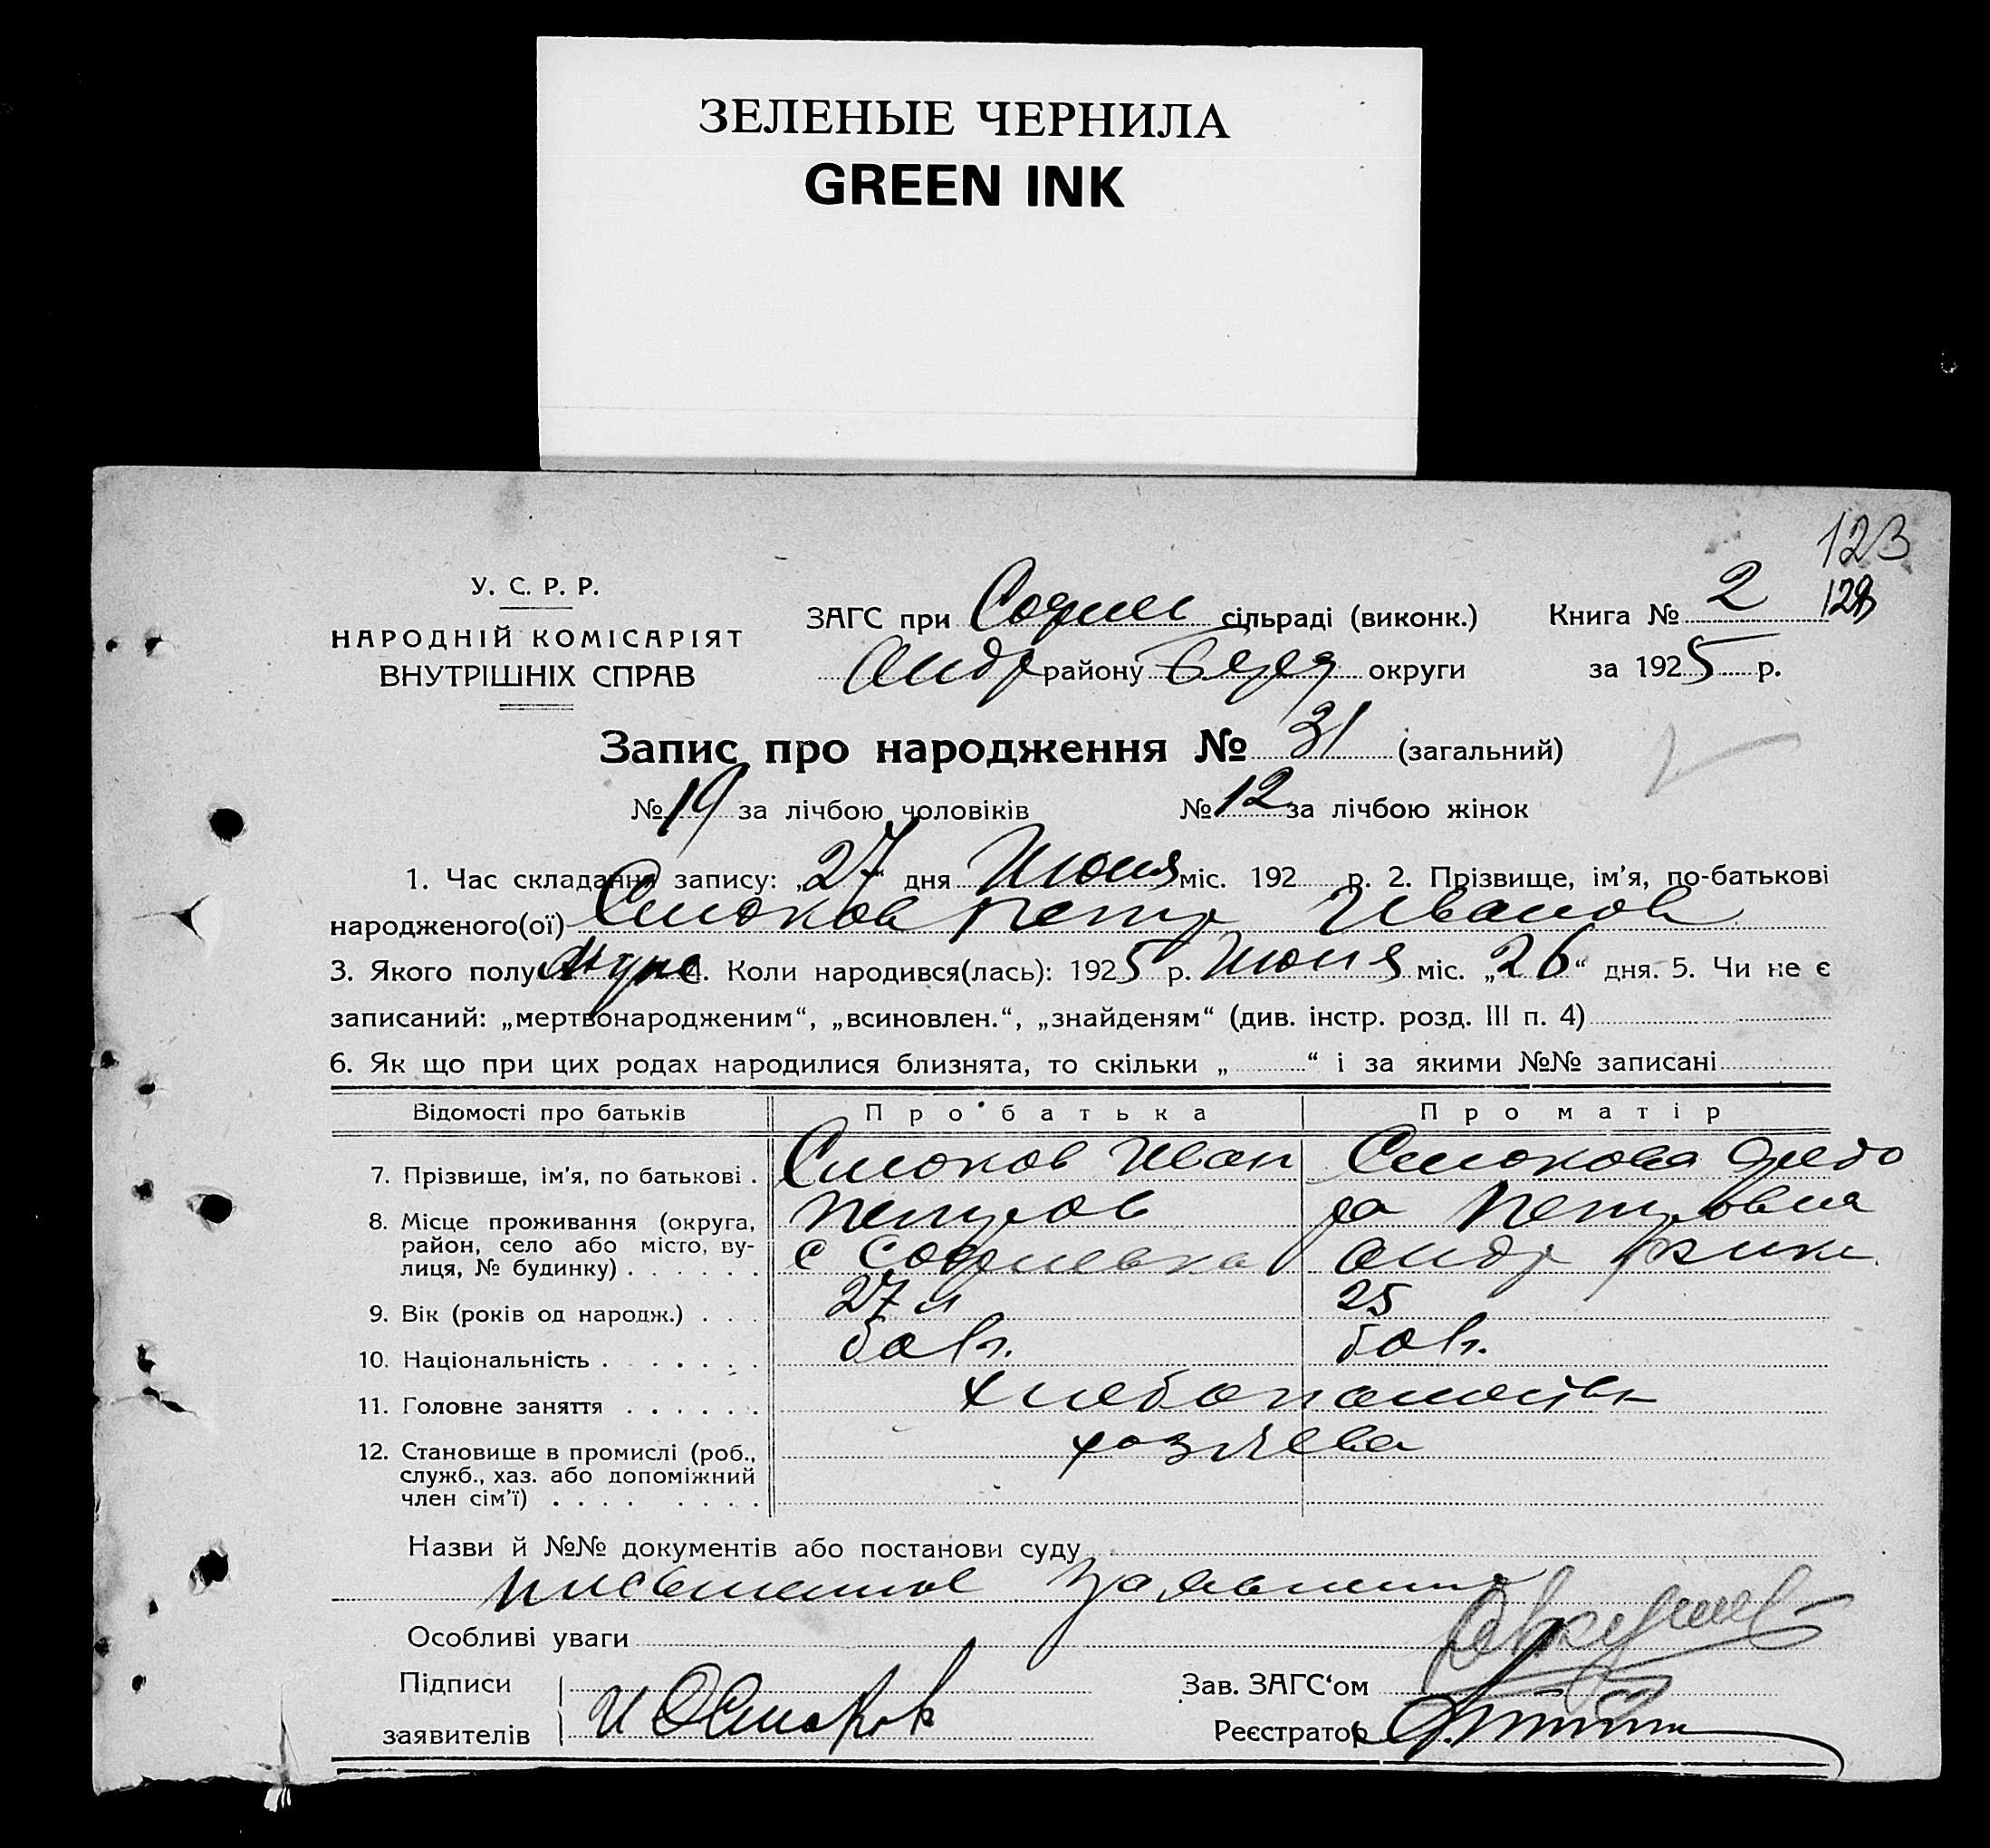 ЗЕЛЕНЫЕ ЧЕРНИЛА
GREEN INK
123
У. С. Р. Р.
НАРОДНІЙ КОМІСАРІЯТ
ВНУТРІШНІХ СПРАВ
ЗАГС при Софиев сільраді (виконк.) Книга № 2
Андр району округи за 1925 р.
Запис про народження № 31 (загальний)
№ 19 за лічбою чоловіків № 12 за лічбою жінок
1. Час складання запису: „27“ дня Июня міс. 192 р. 2. Прізвище, ім’я, по-батькові
народженого(ої) Смоков Петр Иванов
3. Якого полу Муж 4. Коли народився(лась): 1925 р. Июня міс. „26“ дня. 5. Чи не є
записаний: „мертвонародженим“, „всиновлен.“, „знайденям“ (див. інстр. розд. III п. 4)
6. Як що при цих родах народилися близнята, то скільки „ “ і за якими №№ записані
Відомості про батьків Про батька Про матір
7. Прізвище, ім’я, по батькові . Смоков Иван Смокова Федо
8. Місце проживання (округа, Петров ра Петровна
район, село або місто, ву-
лиця, № будинку) . . . . . . с Софиевка Андр
9. Вік (років од народж.) . . . 27 л 25
10. Національність . . . . . . . болг. болг.
11. Головне заняття . . . . . . хлебопашест
12. Становище в промислі (роб.,
служб., хаз. або допоміжний
член сім’ї) . . . . . . . .
Назви й №№ документів або постанови суду
письменное заявление
Особливі уваги
Підписи Зав. ЗАГС‘ом
заявителів Реєстратор